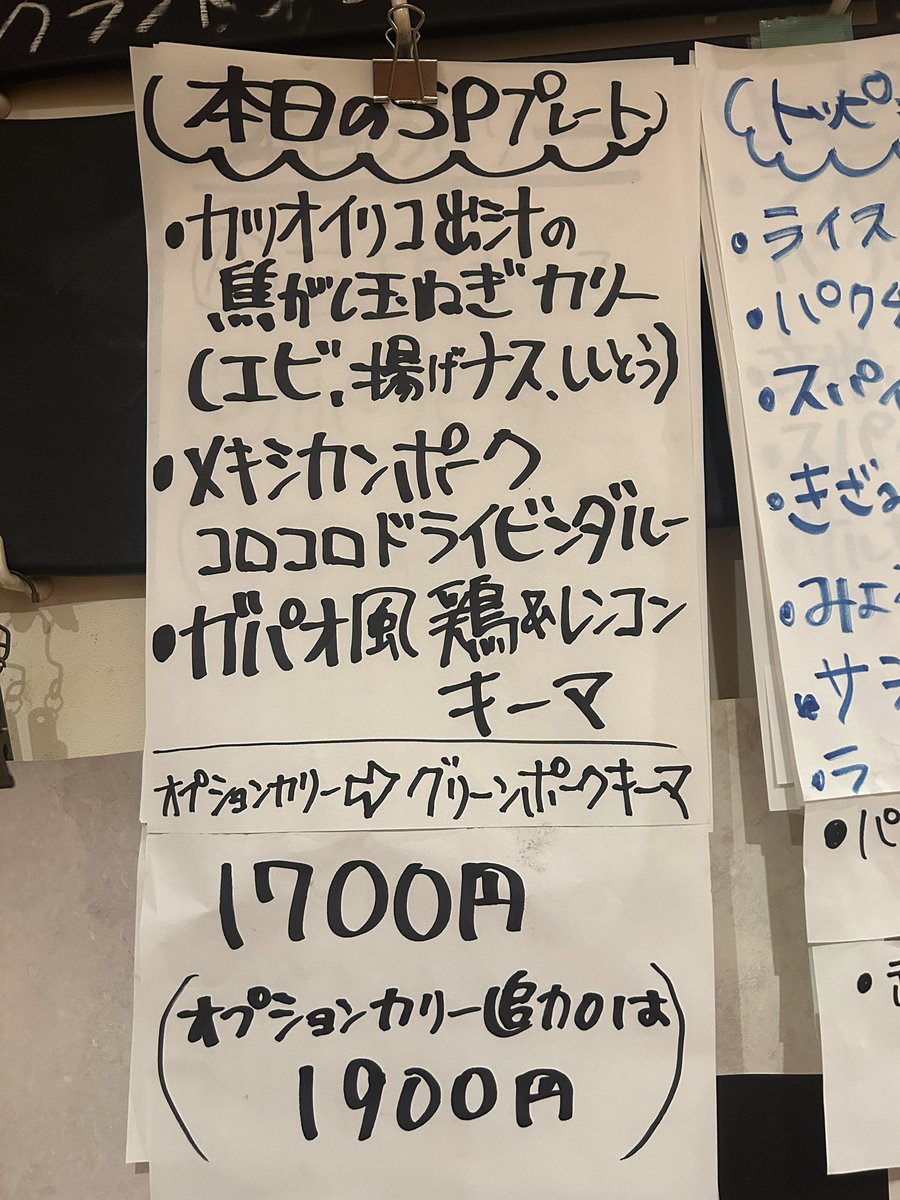 (本日のSPプレート)
・カツオイリコ出汁の
焦がし玉ねぎカリー
(エビ、揚げナス、ししとう)
・メキシカンポーク
コロコロドライビンダルー
・ガパオ風 鶏&レンコン
キーマ
オプションカリー⇨グリーンポークキーマ
1700円
(オプションカリー追加は
1900円)
(トッピ
・ライス
・パクチ
・スパイ
・きざみ
・みょう
・サ
・ラ
・パ